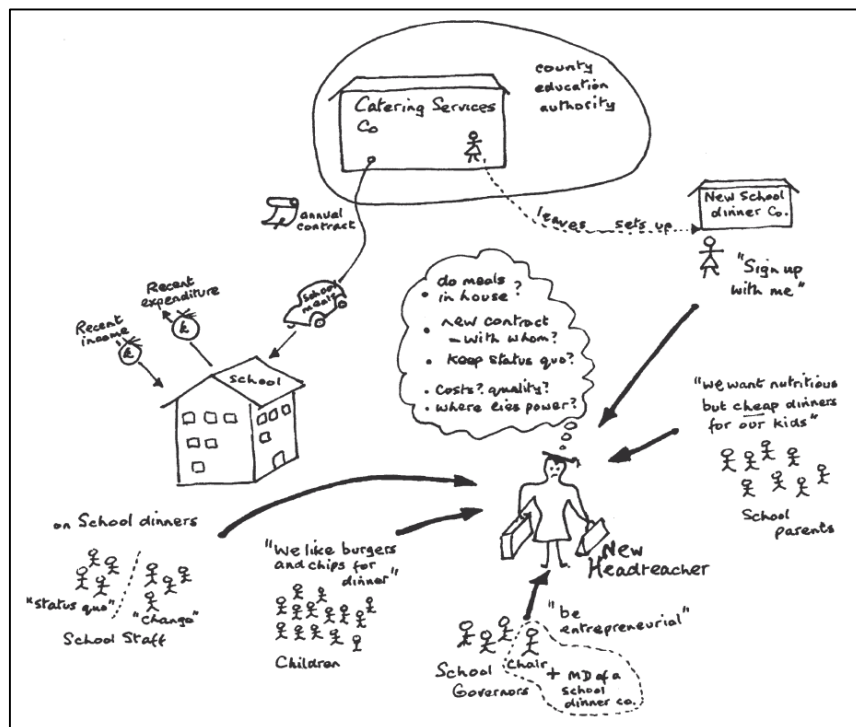 county
education
authority
Catering Services
Co
New School
dinner Co.
leaves sets up
annual
contract
"Sign up
with me"
School
meals
Recent
expenditure
Recent
income
£
£
School
• do meals
in house?
• new contract
- with whom?
• keep status quo?
• costs? quality?
• where lies power?
"We want nutritious
but cheap dinners
for our kids"
School
parents
on School dinners
"status quo"
"Change"
School Staff
"We like burgers
and chips for
dinner"
Children
New
Headteacher
"be
entrepreneurial"
School
Governors
Chair
+ MD of a
school
dinner co.